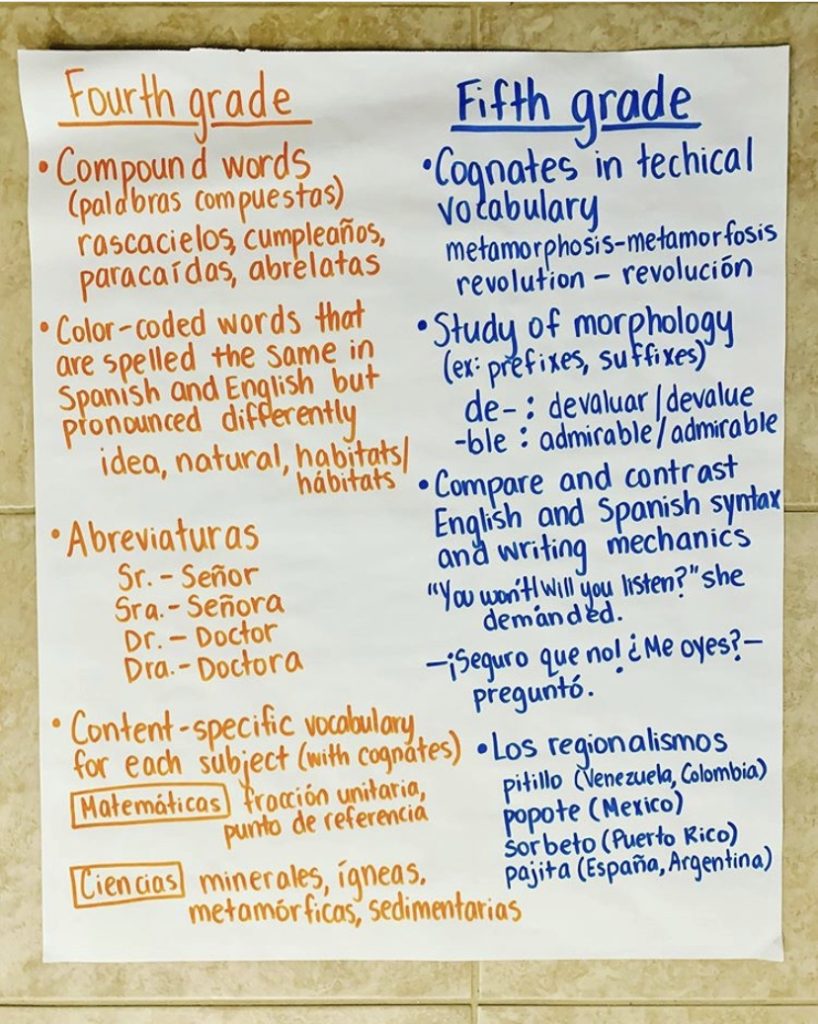 Fourth grade
• Compound words
(palabras compuestas)
rascacielos, cumpleaños,
paracaídas, abrelatas
• Color-coded words that
are spelled the same in
Spanish and English but
pronounced differently
idea, natural, habitats/
hábitats
• Abreviaturas
Sr. - Señor
Sra. - Señora
Dr. - Doctor
Dra. - Doctora
• Content-specific vocabulary
for each subject (with cognates)
Matemáticas fracción unitaria,
punto de referencia
Ciencias minerales, ígneas,
metamórficas, sedimentarias
Fifth grade
• Cognates in techical
vocabulary
metamorphosis-metamorfosis
revolution - revolución
• Study of morphology
(ex: prefixes, suffixes)
de- : devaluar/devalue
-ble : admirable/admirable
• Compare and contrast
English and Spanish syntax
and writing mechanics
"You won't! Will you listen?" she
demanded.
-¡Seguro que no! ¿Me oyes?-
preguntó.
• Los regionalismos
pitillo (Venezuela, Colombia)
popote (Mexico)
sorbeto (Puerto Rico)
pajita (España, Argentina)